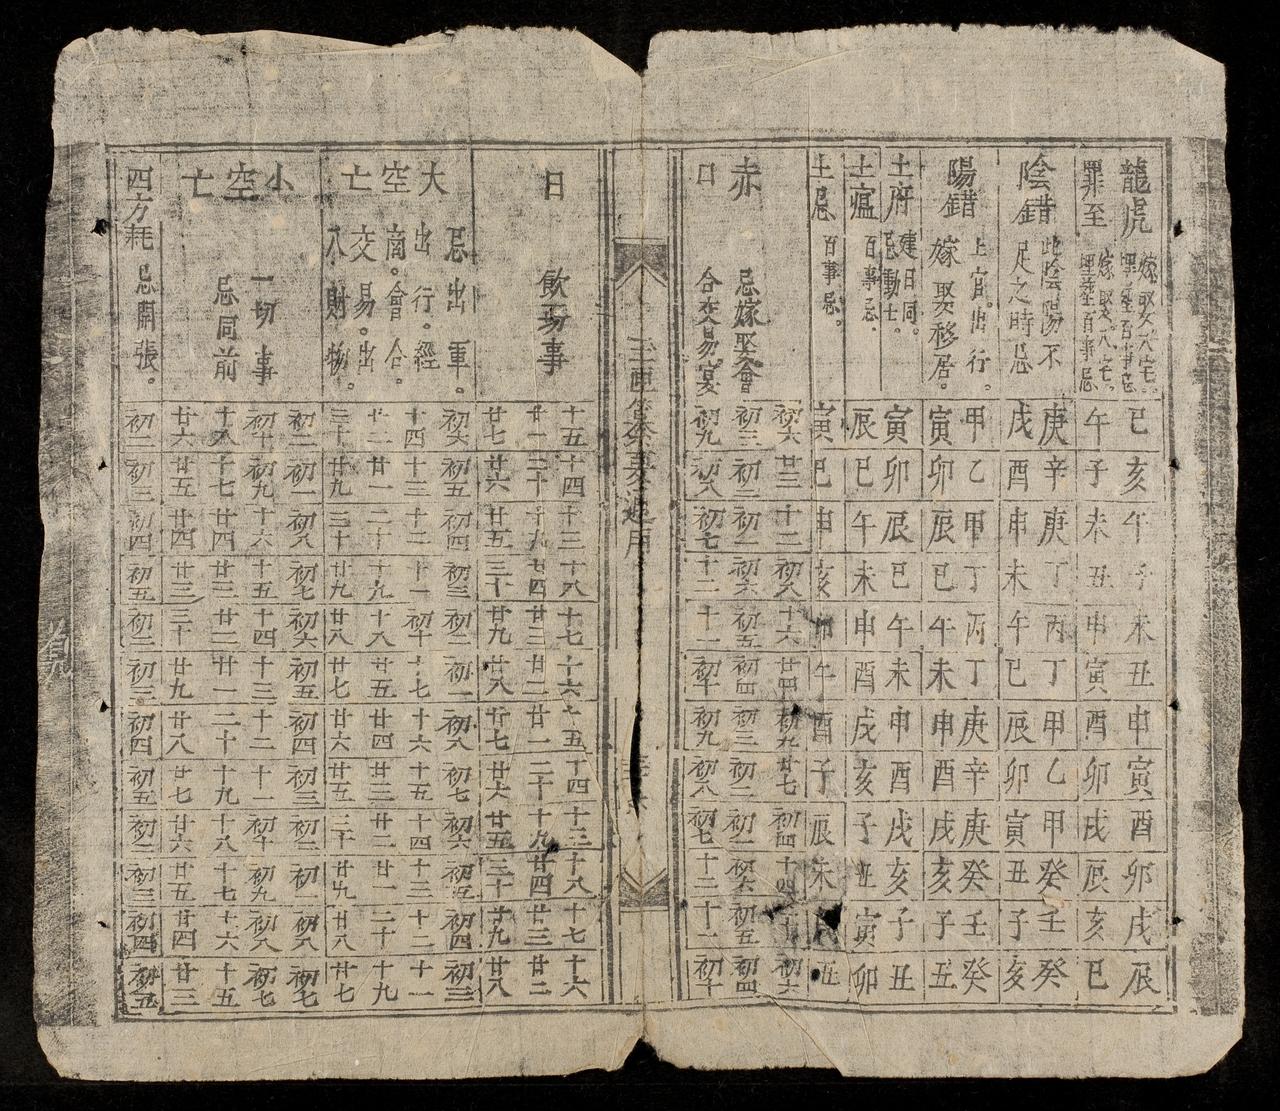 龍虎 嫁娶入宅。埋塟百事忌
巳亥午子未丑申寅酉卯戌辰
罪至 嫁娶入宅。埋塟百事忌
午子未丑申寅酉卯戌辰亥巳
陰錯 此陰陽不足之時忌
庚辛庚丁丙丁甲乙甲癸壬癸
戌酉申未午巳辰卯寅丑子亥
陽錯 上官。出行。嫁娶移居。
甲乙甲丁丙丁庚辛庚癸壬癸
寅卯辰巳午未申酉戌亥子丑
土府 建日同。忌動土。
寅卯辰巳午未申酉戌亥子丑
土瘟 百事忌。
辰巳午未申酉戌亥子丑寅卯
土忌 百事忌。
寅巳申亥卯午酉子辰未 丑
赤口 忌嫁娶會合交易。宴
初六 廿三 十二 初八 十六 廿四 初九 廿七 初四 十四 初六
初三 初二 初一 初六 初五 初四 初三 初二 初一 初六 初五 初四
初九 初八 初七 十二 十一 初十 初九 初八 初七 十二 十一 初十
玉匣 通用
日 飲 事
十五 十四 十三 十八 十七 十六 十五 十四 十三 十八 十七 十六
廿一 二十 十九 廿四 廿三 廿二 廿一 二十 十九 廿四 廿三 廿二
廿七 廿六 廿五 三十 廿九 廿八 廿七 廿六 廿五 三十 廿九 廿八
大空亡 忌出軍。出行。經商。會合。交易。出入財物。
初六 初五 初四 初三 初二 初一 初八 初七 初六 初五 初四 初三
十四 十三 十二 十一 初十 十七 十六 十五 十四 十三 十二 十一
廿二 廿一 二十 十九 十八 廿五 廿四 廿三 廿二 廿一 二十 十九
三十 廿九 三十 廿九 廿八 廿七 廿六 廿五 三十 廿九 廿八 廿七
小空亡 一切事忌同前
初二 初一 初八 初七 初六 初五 初四 初三 初二 初一 初八 初七
初十 初九 十六 十五 十四 十三 十二 十一 初十 初九 初八 初七
十八 十七 廿四 廿三 廿二 廿一 二十 十九 十八 十七 十六 十五
廿六 廿五 廿四 廿三 三十 廿九 廿八 廿七 廿六 廿五 廿四 廿三
四方耗 忌開張。
初二 初三 初四 初五 初二 初三 初四 初五 初二 初三 初四 初五